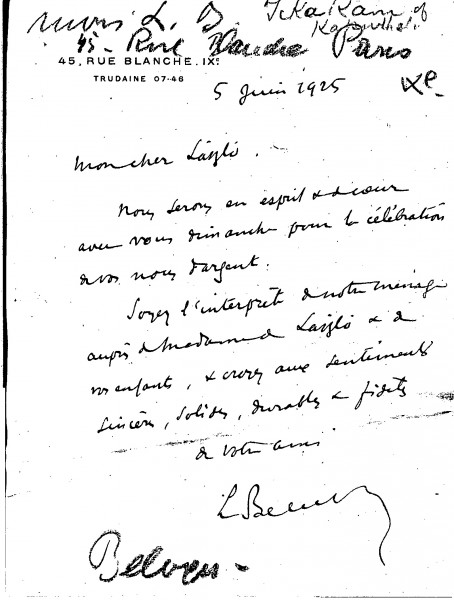 Tikka Rani of
Kapurthala
45 - Rue Blanche Paris
45, RUE BLANCHE. IXᵉ
TRUDAINE 07-46
IXe
5 Juin 1925
Mon cher László.
Nous serons en esprit & de cœur
avec vous dimanche pour la célébration
de vos noces d'argent.
Soyez l'interprète de notre ménage
auprès de Madame de László & de
vos enfants, & croyez aux sentiments
sincères, solides, durables & fidèles
de votre ami